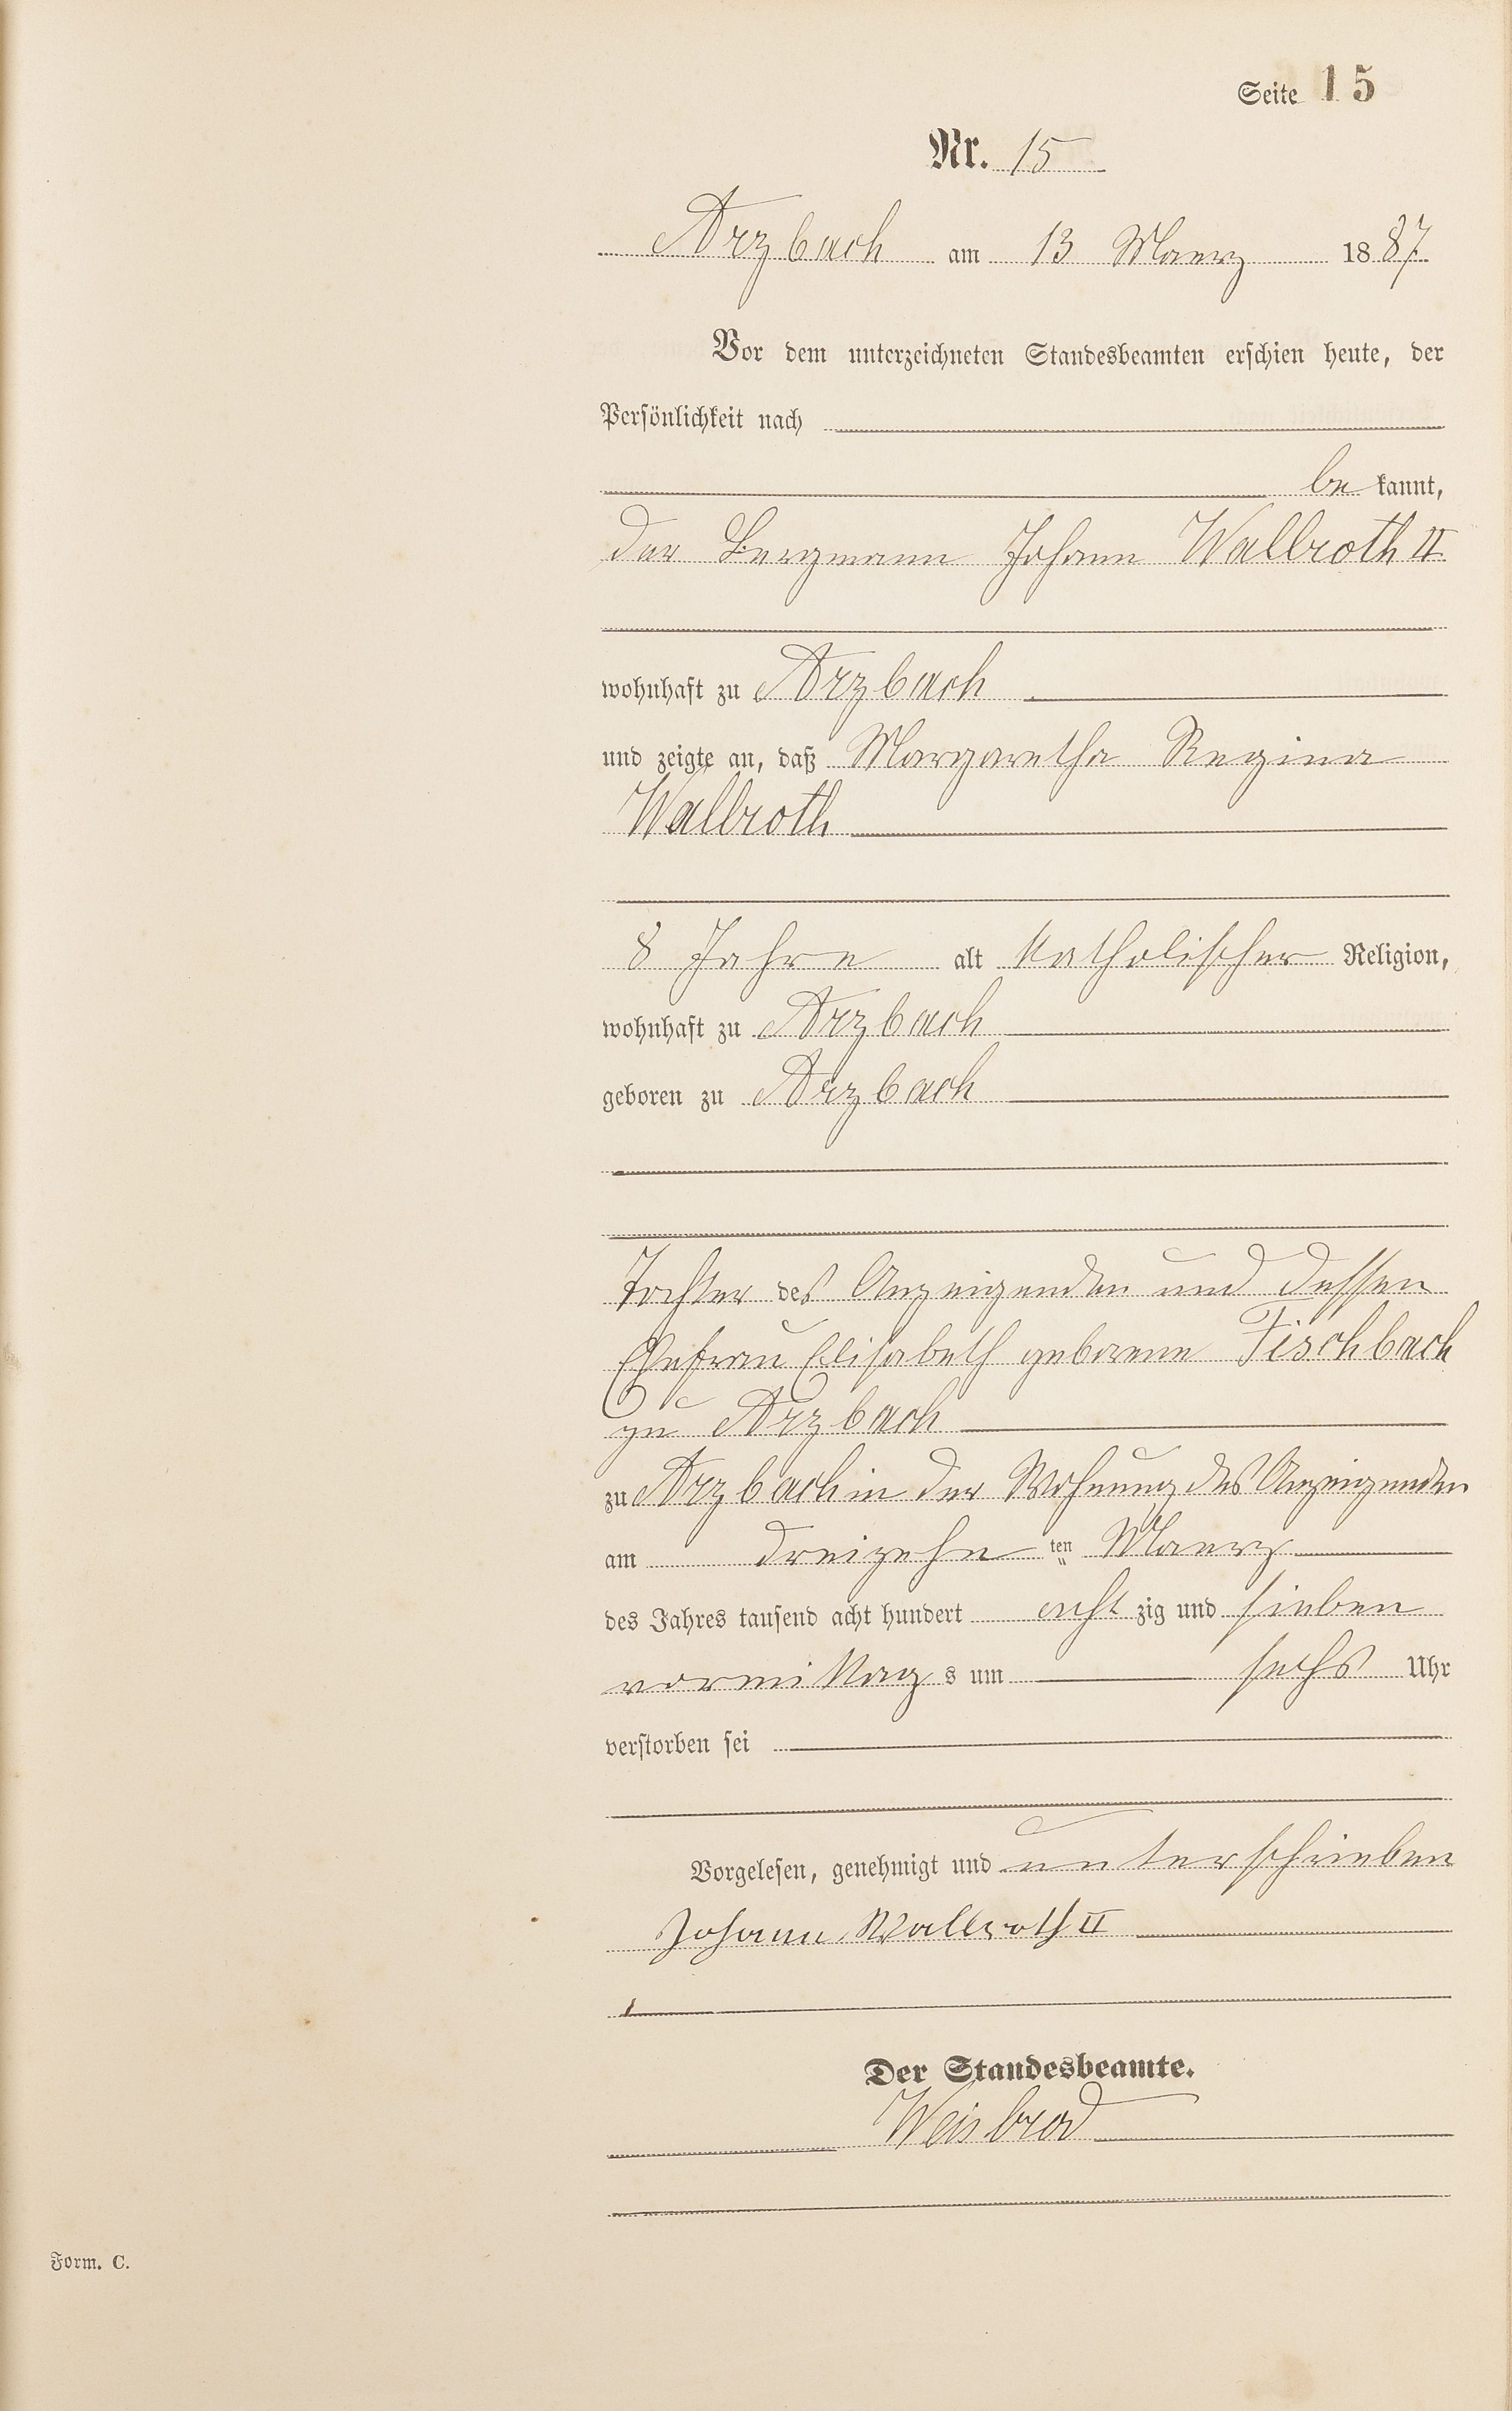 Seite 15
Nr. 15
Arzbach am 13 Maerz 1887.
Vor dem unterzeichneten Standesbeamten erschien heute, der
Persönlichkeit nach
be kannt,
der Bergmann Johann Wallroth II
wohnhaft zu Arzbach
und zeigte an, daß Margaretha Regina
Wallroth
8 Jahre alt katholischer Religion,
wohnhaft zu Arzbach
geboren zu Arzbach
Tochter des Anzeigenden und dessen
Ehefrau Elisabeth geborene Fischbach
zu Arzbach
zu Arzbach in der Wohnung des Anzeigenden
am dreizehn ten Maerz
des Jahres tausend acht hundert acht zig und sieben
vormittag s um sechs Uhr
verstorben sei
Vorgelesen, genehmigt und unterschrieben
Johann Wallroth II
Der Standesbeamte.
Weisbrod
Form. C.